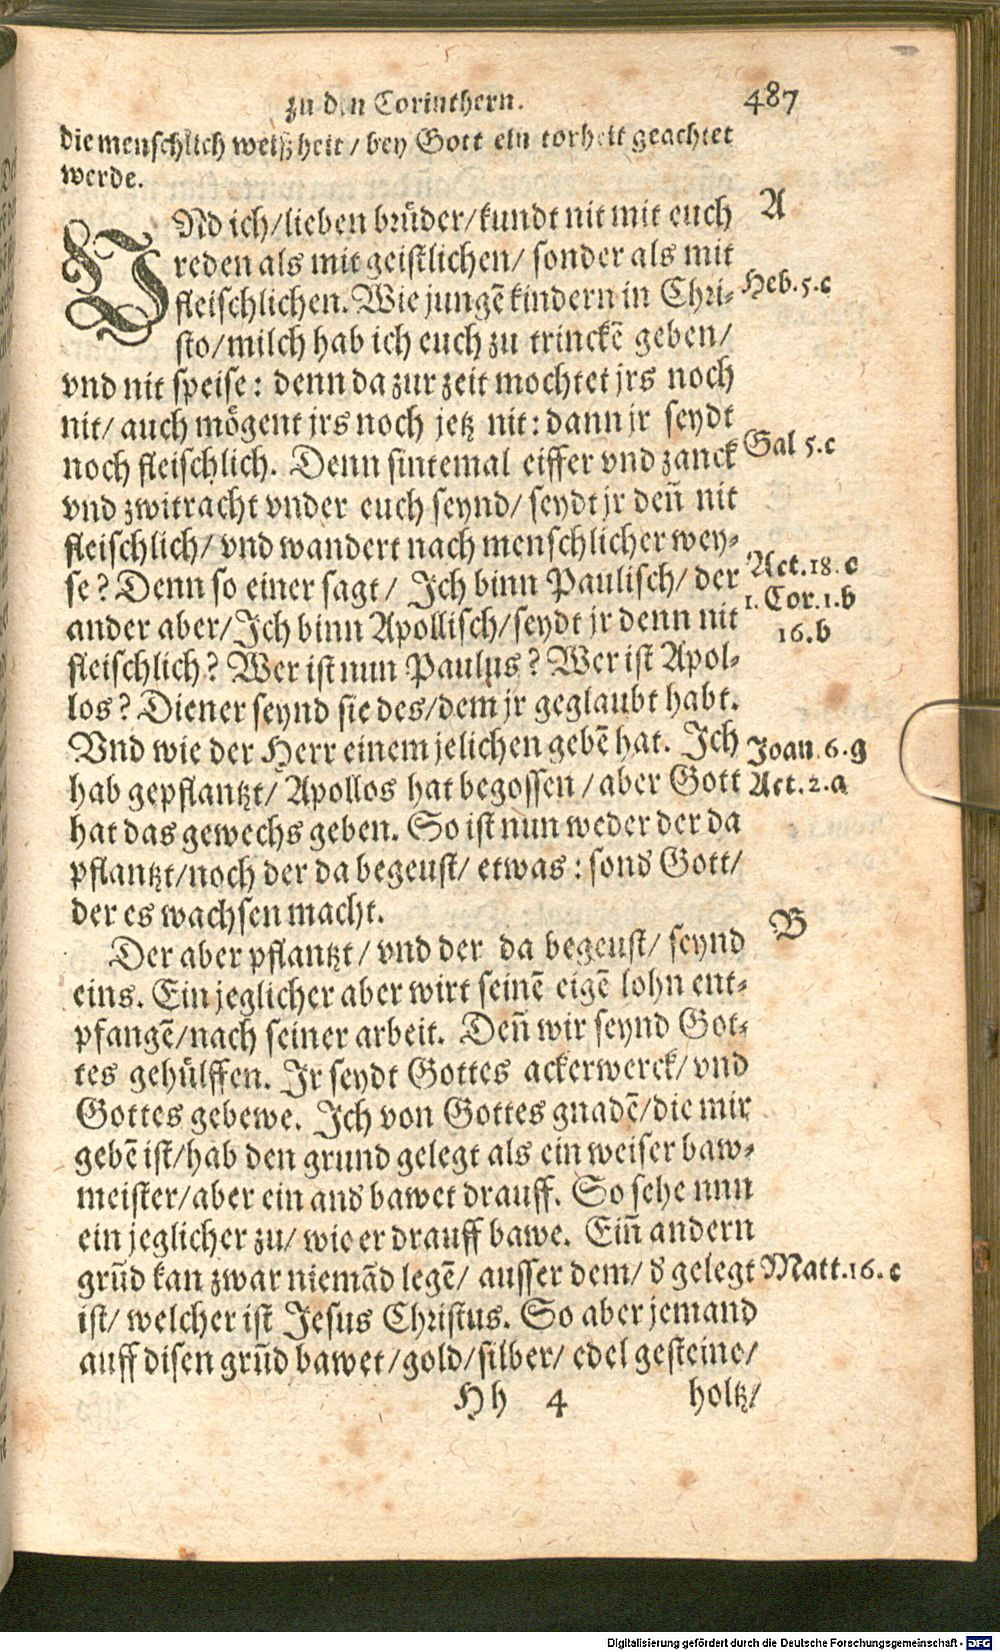 zu den Corinthern. 487
die menschlich weißheit / bey Gott ein torheit geachtet
werde.
VNd ich/lieben brüder/kundt nit mit euch A
reden als mit geistlichen/ sonder als mit
fleischlichen. Wie jungē kindern in Chri- Heb.5.c
sto/milch hab ich euch zu trinckē geben/
vnd nit speise: denn da zur zeit mochtet jrs noch
nit/ auch mögent jrs noch jetz nit: dann jr seydt
noch fleischlich. Denn sintemal eiffer vnd zanck Gal 5.c
vnd zwitracht vnder euch seynd/ seydt jr deñ nit
fleischlich/ vnd wandert nach menschlicher wey-
se? Denn so einer sagt/ Ich binn Paulisch/ der Act.18.c
ander aber/Ich binn Apollisch/seydt jr denn nit 1. Cor.1.b
fleischlich? Wer ist nun Paulus? Wer ist Apol- 16.b
los? Diener seynd sie des/dem jr geglaubt habt.
Vnd wie der Herr einem jelichen gebē hat. Ich Joan.6.g
hab gepflantzt/ Apollos hat begossen / aber Gott Act.2.a
hat das gewechs geben. So ist nun weder der da
pflantzt/noch der da begeust/ etwas: sond Gott/
der es wachsen macht.
Der aber pflantzt/ vnd der da begeust/ seynd B
eins. Ein jeglicher aber wirt seinē eigē lohn ent-
pfangē/nach seiner arbeit. Deñ wir seynd Got-
tes gehülffen. Ir seydt Gottes ackerwerck/ vnd
Gottes gebewe. Ich von Gottes gnadē/die mir
gebē ist/hab den grund gelegt als ein weiser baw-
meister/aber ein and bawet drauff. So sehe nun
ein jeglicher zu/ wie er drauff bawe. Eiñ andern
grūd kan zwar niemād legē/ ausser dem/ d gelegt Matt.16.c
ist/ welcher ist Jesus Christus. So aber jemand
auff disen grūd bawet/gold/silber/ edel gesteine/
Hh 4 holtz/
Digitalisierung gefördert durch die Deutsche Forschungsgemeinschaft - DFG